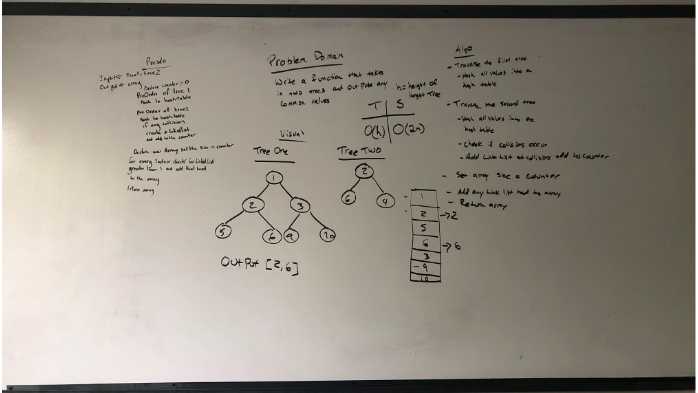 Pseudo
Input ← tree1, tree2
Output ← array
Declare counter = 0
PreOrder of tree 1
Hash to hashtable
Pre Order of tree2
Hash to hashtable
if any collisions
create a linked list
and add to the counter
Declare new Array size = counter
for every index check for linked list
greater than 1 and add that head
to the array
return array
Problem Domain
Write a function that takes
in two trees and outputs any
common values
h = height of
largest tree
T S
O(h) O(2n)
Visual
Tree One
1
2 3
5 6 9 10
Output [2,6]
Tree Two
2
6 4
1
2 → 2
5
6 → 6
3
9
10
Algo
- Traverse the first tree
- Hash all values into a
hash table
- Traverse the second tree
- Hash all values into the
hash table
- check if collisions occur
- Add Link List at collisions add to counter
- Set array size = counter
- Add any link list head to array
- Return array